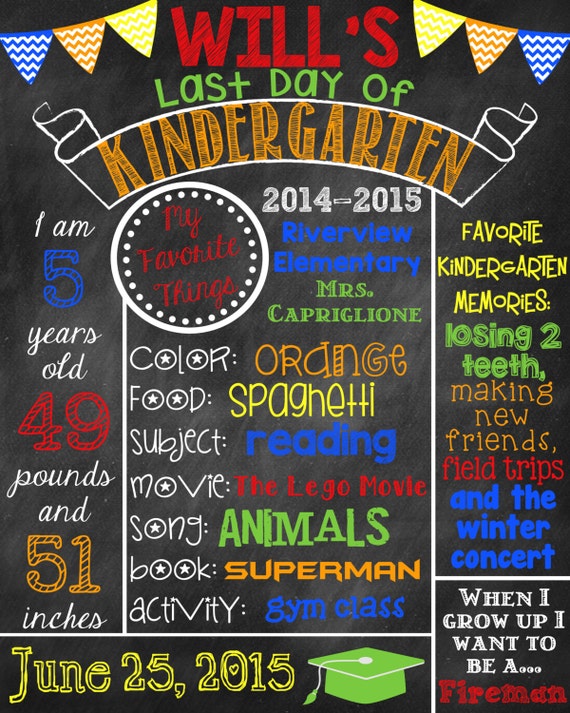 WILL'S
LAST DAY OF
KINDERGARTEN
I am
5
years
old
49
pounds
and
51
inches
My
Favorite
Things
2014-2015
Riverview
Elementary
MRS.
CAPRIGLIONE
COLOR: ORANGE
FOOD: SPAGHETTI
subject: reading
movie: The Lego Movie
song: ANIMALS
book: SUPERMAN
activity: gym class
FAVORITE
KINDERGARTEN
MEMORIES:
losing 2
teeth,
making
new
friends,
field trips
and the
winter
concert
WHEN I
GROW UP I
WANT TO
BE A...
Fireman
June 25, 2015